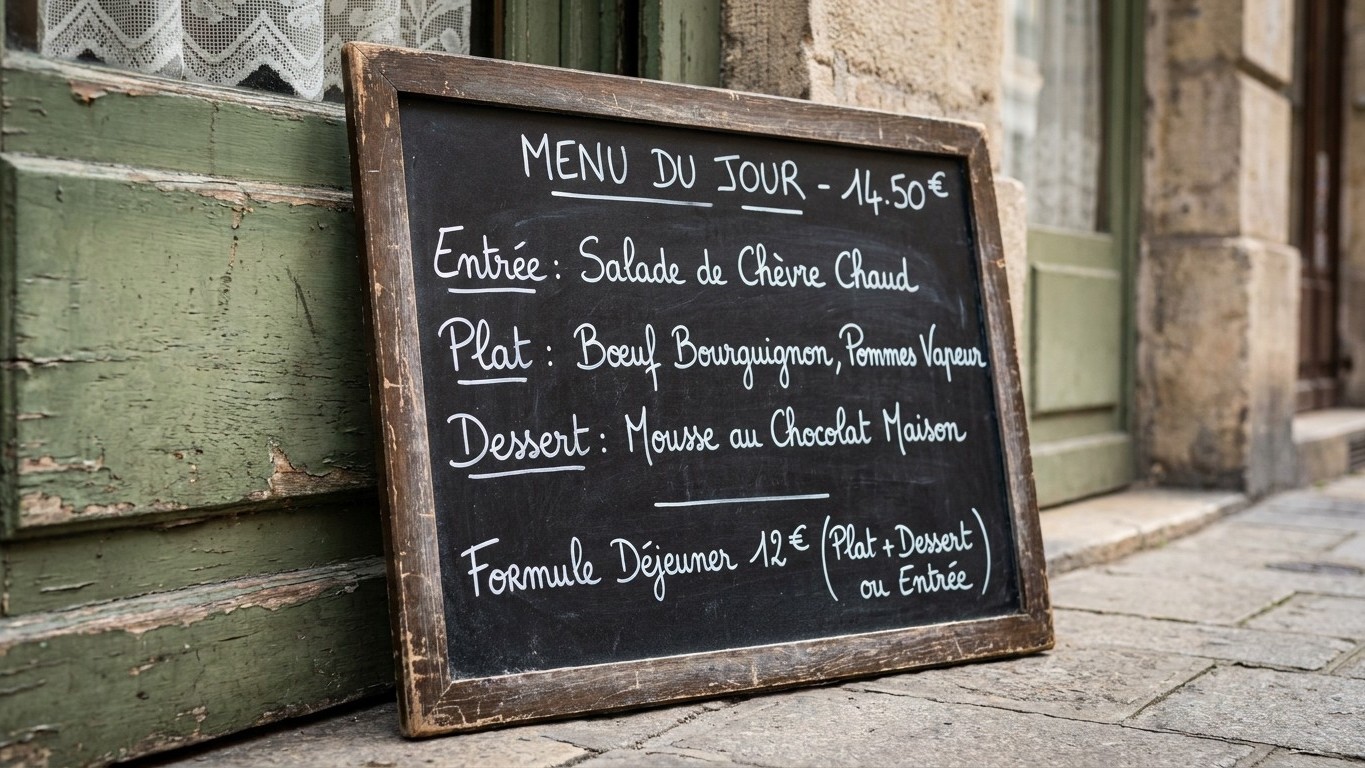 MENU DU JOUR - 14.50€
Entrée : Salade de Chèvre Chaud
Plat : Bœuf Bourguignon, Pommes Vapeur
Dessert : Mousse au Chocolat Maison
Formule Déjeuner 12€ (Plat + Dessert
ou Entrée)